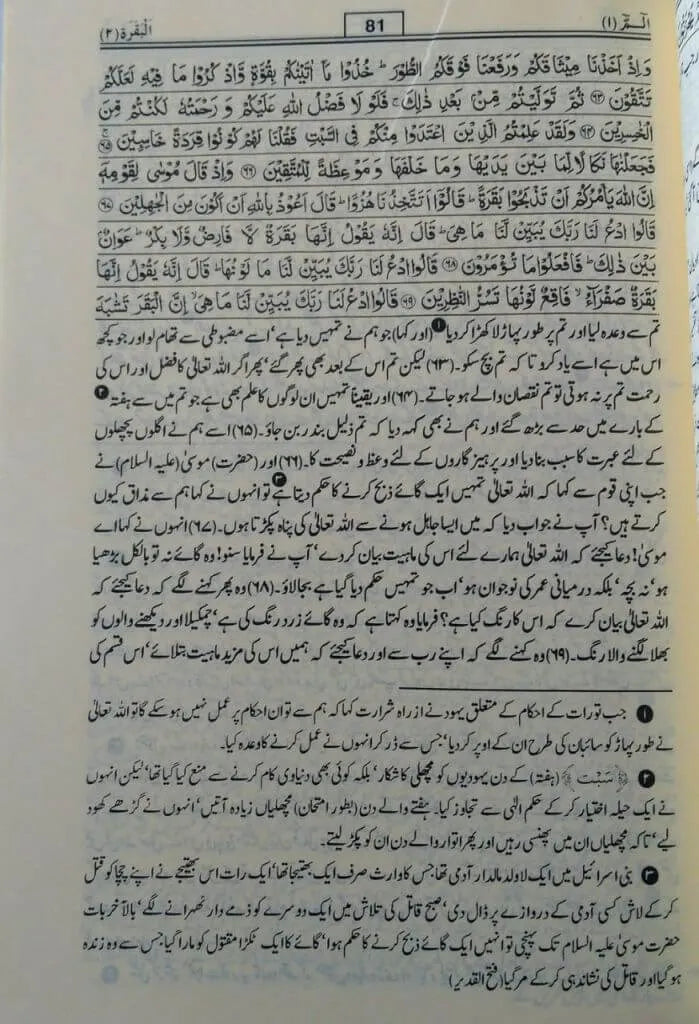 الٓمّٓ (۱)
81
البقرة (۲)
وَاِذْ اَخَذْنَا مِيْثَاقَكُمْ وَرَفَعْنَا فَوْقَكُمُ الطُّوْرَ ؕ خُذُوْا مَآ اٰتَيْنٰكُمْ بِقُوَّةٍ وَّاذْكُرُوْا مَا فِيْهِ لَعَلَّكُمْ
تَتَّقُوْنَ ﴿۶۳﴾ ثُمَّ تَوَلَّيْتُمْ مِّنْۢ بَعْدِ ذٰلِكَ ۚ فَلَوْ لَا فَضْلُ اللّٰهِ عَلَيْكُمْ وَ رَحْمَتُهٗ لَكُنْتُمْ مِّنَ
الْخٰسِرِيْنَ ﴿۶۴﴾ وَلَقَدْ عَلِمْتُمُ الَّذِيْنَ اعْتَدَوْا مِنْكُمْ فِى السَّبْتِ فَقُلْنَا لَهُمْ كُوْنُوْا قِرَدَةً خَاسِـِٕيْنَ ﴿۶۵﴾
فَجَعَلْنٰهَا نَكَالًا لِّمَا بَيْنَ يَدَيْهَا وَمَا خَلْفَهَا وَمَوْعِظَةً لِّلْمُتَّقِيْنَ ﴿۶۶﴾ وَاِذْ قَالَ مُوْسٰى لِقَوْمِهٖٓ
اِنَّ اللّٰهَ يَاْمُرُكُمْ اَنْ تَذْبَحُوْا بَقَرَةً ؕ قَالُوْٓا اَتَتَّخِذُنَا هُزُوًا ؕ قَالَ اَعُوْذُ بِاللّٰهِ اَنْ اَكُوْنَ مِنَ الْجٰهِلِيْنَ ﴿۶۷﴾
قَالُوا ادْعُ لَنَا رَبَّكَ يُبَيِّنْ لَّنَا مَا هِىَ ؕ قَالَ اِنَّهٗ يَقُوْلُ اِنَّهَا بَقَرَةٌ لَّا فَارِضٌ وَّلَا بِكْرٌ ؕ عَوَانٌۢ
بَيْنَ ذٰلِكَ ؕ فَافْعَلُوْا مَا تُؤْمَرُوْنَ ﴿۶۸﴾ قَالُوا ادْعُ لَنَا رَبَّكَ يُبَيِّنْ لَّنَا مَا لَوْنُهَا ؕ قَالَ اِنَّهٗ يَقُوْلُ اِنَّهَا
بَقَرَةٌ صَفْرَآءُ ۙ فَاقِعٌ لَّوْنُهَا تَسُرُّ النّٰظِرِيْنَ ﴿۶۹﴾ قَالُوا ادْعُ لَنَا رَبَّكَ يُبَيِّنْ لَّنَا مَا هِىَ ۙ اِنَّ الْبَقَرَ تَشٰبَهَ
تم سے وعدہ لیا اور تم پر طور پہاڑ لا کھڑا کر دیا ❶ (اور کہا) جو ہم نے تمہیں دیا ہے' اسے مضبوطی سے تھام لو اور جو کچھ
اس میں ہے اسے یاد کرو تاکہ تم بچ سکو۔ (۶۳) لیکن تم اس کے بعد بھی پھر گئے' پھر اگر اللہ تعالیٰ کا فضل اور اس کی
رحمت تم پر نہ ہوتی تو تم نقصان والے ہو جاتے۔ (۶۴) اور یقیناً تمہیں ان لوگوں کا علم بھی ہے جو تم میں سے ہفتہ ❷
کے بارے میں حد سے بڑھ گئے اور ہم نے بھی کہہ دیا کہ تم ذلیل بندر بن جاؤ۔ (۶۵) اسے ہم نے اگلوں پچھلوں
کے لئے عبرت کا سبب بنا دیا اور پرہیز گاروں کے لئے وعظ و نصیحت کا۔ (۶۶) اور (حضرت) موسیٰ (علیہ السلام) نے
جب اپنی قوم سے کہا کہ اللہ تعالیٰ تمہیں ایک گائے ذبح کرنے کا حکم دیتا ہے ❸ تو انہوں نے کہا ہم سے مذاق کیوں
کرتے ہیں؟ آپ نے جواب دیا کہ میں ایسا جاہل ہونے سے اللہ تعالیٰ کی پناہ پکڑتا ہوں۔ (۶۷) انہوں نے کہا اے
موسیٰ! دعا کیجئے کہ اللہ تعالیٰ ہمارے لئے اس کی ماہیت بیان کر دے' آپ نے فرمایا سنو! وہ گائے نہ تو بالکل بڑھیا
ہو' نہ بچہ' بلکہ درمیانی عمر کی نوجوان ہو' اب جو تمہیں حکم دیا گیا ہے بجا لاؤ۔ (۶۸) وہ پھر کہنے لگے کہ دعا کیجئے کہ
اللہ تعالیٰ بیان کرے کہ اس کا رنگ کیا ہے؟ فرمایا وہ کہتا ہے کہ وہ گائے زرد رنگ کی ہے' چمکیلا اور دیکھنے والوں کو
بھلا لگنے والا رنگ۔ (۶۹) وہ کہنے لگے کہ اپنے رب سے اور دعا کیجئے کہ ہمیں اس کی مزید ماہیت بتلائے' اس قسم کی
❶ جب تورات کے احکام کے متعلق یہود نے ازراہ شرارت کہا کہ ہم سے تو ان احکام پر عمل نہیں ہو سکے گا تو اللہ تعالیٰ
نے طور پہاڑ کو سائبان کی طرح ان کے اوپر کر دیا' جس سے ڈر کر انہوں نے عمل کرنے کا وعدہ کیا۔
❷ ﴿سَبْت﴾ (ہفتہ) کے دن یہودیوں کو مچھلی کا شکار' بلکہ کوئی بھی دنیاوی کام کرنے سے منع کیا گیا تھا' لیکن انہوں
نے ایک حیلہ اختیار کر کے حکم الٰہی سے تجاوز کیا۔ ہفتے والے دن (بطور امتحان) مچھلیاں زیادہ آتیں' انہوں نے گڑھے کھود
لیے' تاکہ مچھلیاں ان میں پھنسی رہیں اور پھر اتوار والے دن ان کو پکڑ لیتے۔
❸ بنی اسرائیل میں ایک لا ولد مالدار آدمی تھا جس کا وارث صرف ایک بھتیجا تھا' ایک رات اس بھتیجے نے اپنے چچا کو قتل
کر کے لاش کسی آدمی کے دروازے پر ڈال دی' صبح قاتل کی تلاش میں ایک دوسرے کو ذمے دار ٹھہرانے لگے' بالآخر بات
حضرت موسیٰ علیہ السلام تک پہنچی تو انہیں ایک گائے ذبح کرنے کا حکم ہوا' گائے کا ایک ٹکڑا مقتول کو مارا گیا جس سے وہ زندہ
ہو گیا اور قاتل کی نشاندہی کر کے مر گیا (فتح القدیر)